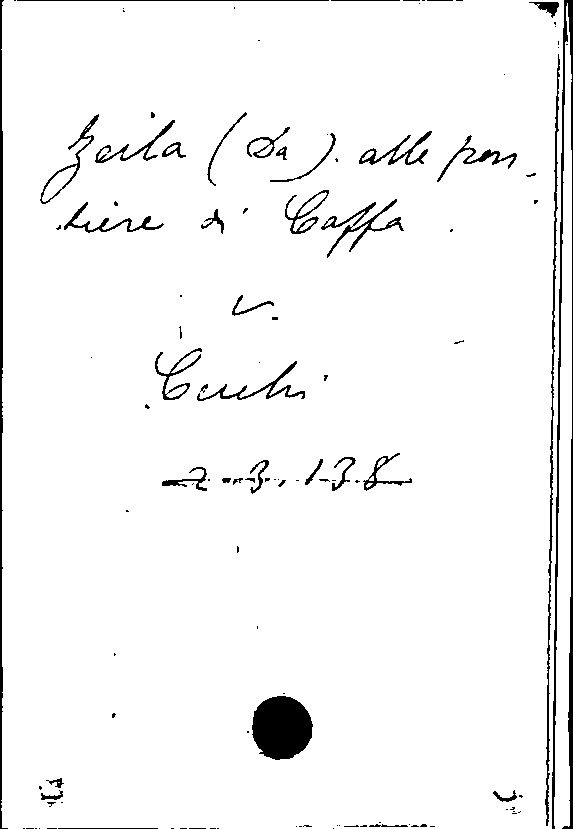 Zeila (Da). alle fron-
tiere di Caffa.
v.
Cecchi
2.3.138